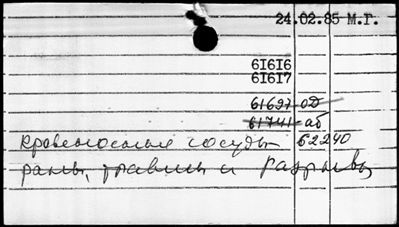 24.02.85 М.Г.
61616
61617
61697-ад
61741-аб
кровеносные сосуды 62240
раны, травмы и разрывы